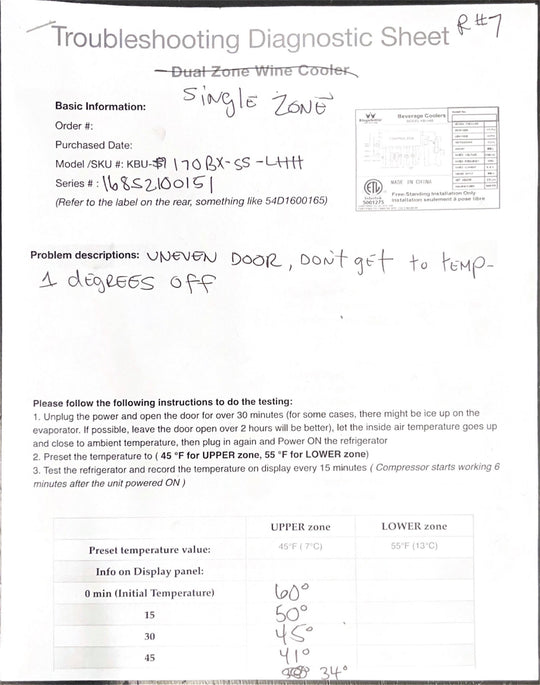 R#7
Troubleshooting Diagnostic Sheet
Dual Zone Wine Cooler
SINglE ZONE
Basic Information:
Order #:
Purchased Date:
Model /SKU #: KBU-170BX-SS-LHH
Series # : 16852100151
(Refer to the label on the rear, something like 54D1600165)
Beverage Coolers
MADE IN CHINA
Intertek
5001275
Free-Standing Installation Only
Installation seulement à pose libre
Problem descriptions: UNEVEN DOOR, DON't gEt to tEMP-
1 dEgREES OFF
Please follow the following instructions to do the testing:
1. Unplug the power and open the door for over 30 minutes (for some cases, there might be ice up on the
evaporator. If possible, leave the door open over 2 hours will be better), let the inside air temperature goes up
and close to ambient temperature, then plug in again and Power ON the refrigerator
2. Preset the temperature to ( 45 °F for UPPER zone, 55 °F for LOWER zone)
3. Test the refrigerator and record the temperature on display every 15 minutes ( Compressor starts working 6
minutes after the unit powered ON )
UPPER zone LOWER zone
Preset temperature value: 45°F ( 7°C) 55°F (13°C)
Info on Display panel:
0 min (Initial Temperature) 60°
15 50°
30 45°
45 41°
34°